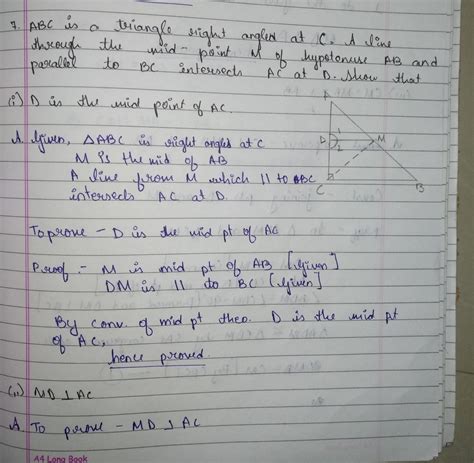 7. ABC is a triangle right angled at C. A line
through the mid-point M of hypotenuse AB and
parallel to BC intersects AC at D. Show that
(i) D is the mid point of AC.
A
A. Given, △ABC is right angled at C
D 1 M
2
M is the mid of AB
A line from M which || to BC
C B
intersects AC at D.
To prove - D is the mid pt of AC
Proof :- M is mid pt of AB [Given]
DM is || to BC [Given]
By conv. of mid pt theo. D is the mid pt
of AC,
hence proved.
(ii) MD ⊥ AC
A. To prove - MD ⊥ AC
A4 Long Book